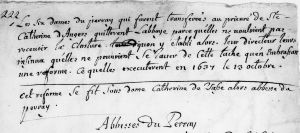 222
Les Six dames du perray qui furent transferés au prieuré de Ste
Catherine d'Angers quitterent L'abbaye parce quelles ne vouloient pas
recevoir la Closture quon y etabli alors. leur directeur leurs
insinua quelles ne pouvoient se sauver de cette tache quen Embrassant
une reforme. ce quelles executerent en 1637 le 13 octobre.
cet reforme se fit sous dome Catherine de alors abbesse du
perray.
Abbesses du Perray